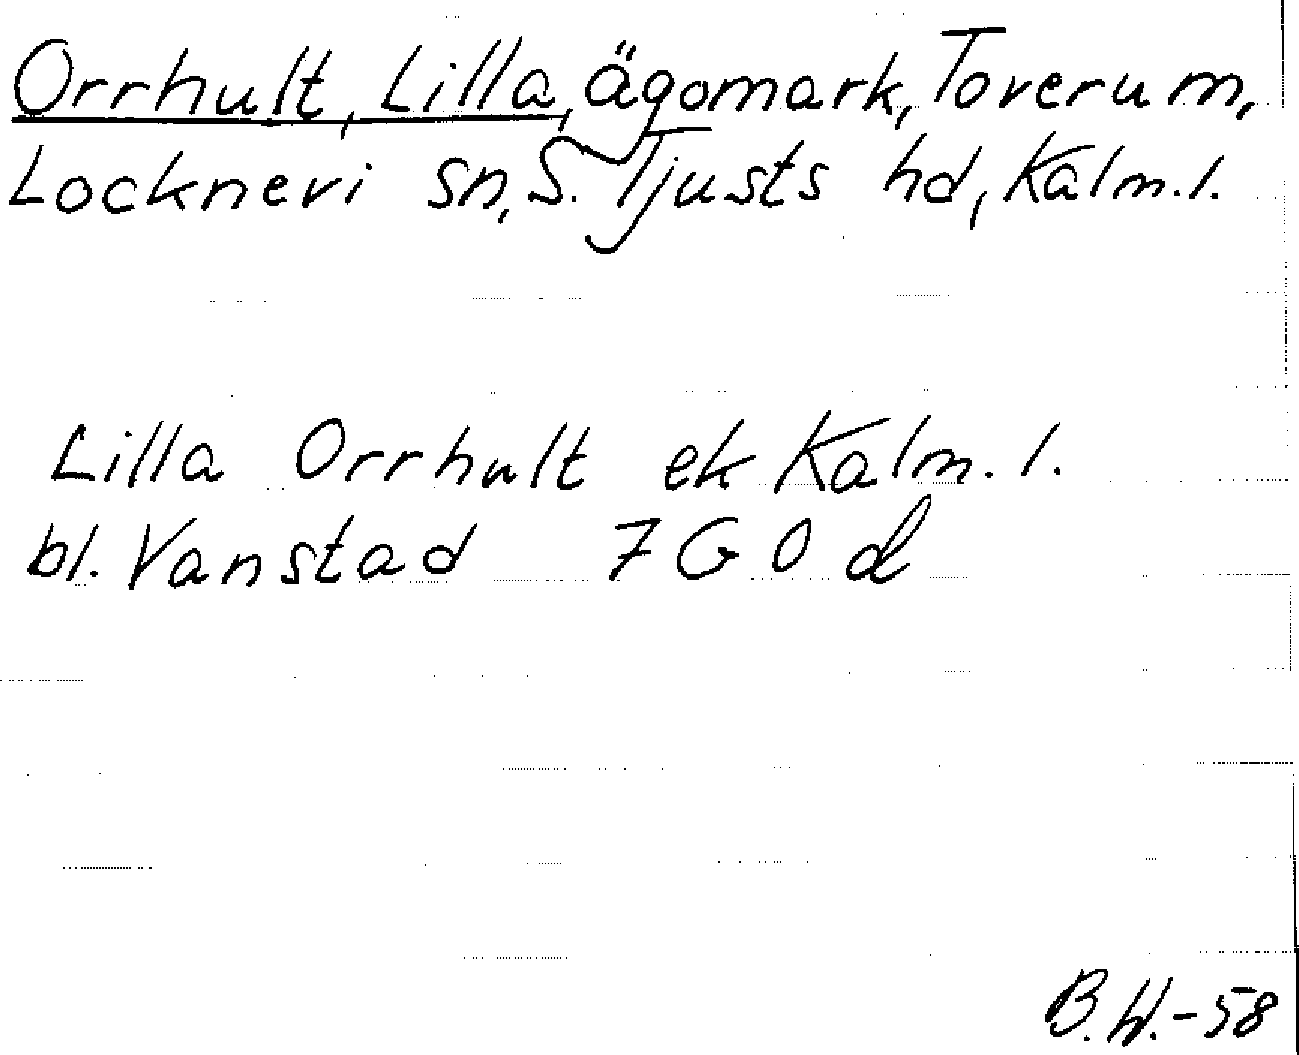 Orrhult, Lilla, ägomark, Toverum,
Lockneri sn, S. Tjusts hd, Kalm. l.
Lilla Orrhult ek Kalm. l.
bl. Vanstad 7 G 0 d
B.W.-58